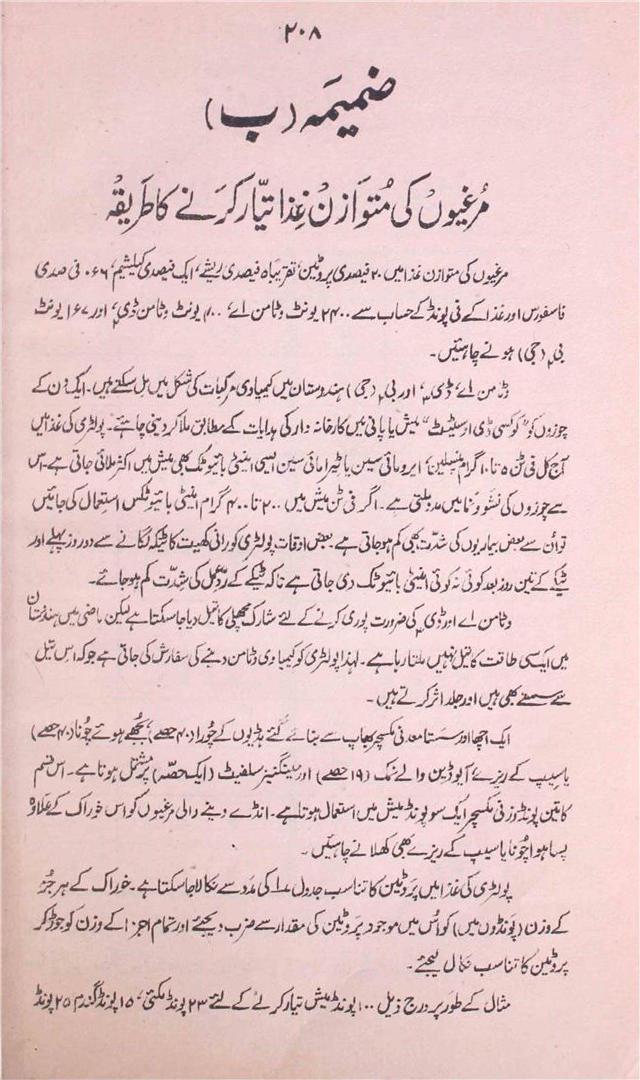 ۲۰۸
ضمیمہ (ب)
مرغیوں کی متوازن غذا تیار کرنے کا طریقہ
مرغیوں کی متوازن غذا میں ۲۰ فیصدی پروٹین، تقریباً ۵ فیصدی ریشے، ایک فیصدی کیلشیم، ۰۶۶ فی صدی
فاسفورس اور غذا کے فی پونڈ کے حساب سے ۲۴۰۰ یونٹ وٹامن اے، ۷۰۰ یونٹ وٹامن ڈی، اور ۱۶۷ یونٹ
بی۲ (جی) ہونے چاہئیں۔
وٹامن اے، ڈی۳، اور بی۲ (جی) ہندوستان میں کیمیاوی مرکبات کی شکل میں مل سکتے ہیں۔ ایک دن کے
چوزوں کو "کوکسی ڈی اوسٹیٹ" میش یا پانی میں کارخانہ دار کی ہدایات کے مطابق ملا کر دینی چاہئے۔ پولٹری کی غذا میں
آج کل فی ٹن ۵ تا ۱۰ گرام پنسلین، ایرومائی سین یا ٹیرامائی سین ایسی اینٹی بائیوٹک بھی میش میں اکثر ملائی جاتی ہے۔ اس
سے چوزوں کی نشوونما میں مدد ملتی ہے۔ اگر فی ٹن میش میں ۲۰۰ تا ۴۰۰ گرام اینٹی بائیوٹکس استعمال کی جائیں
تو اُن سے بعض بیماریوں کی شدّت بھی کم ہو جاتی ہے۔ بعض اوقات پولٹری کو رانی کھیت کا ٹیکہ لگانے سے دو روز پہلے اور
ٹیکے کے تین روز بعد کوئی نہ کوئی اینٹی بائیوٹک دی جاتی ہے تاکہ ٹیکے کے ردِّ عمل کی شدّت کم ہو جائے۔
وٹامن اے اور ڈی۳ کی ضرورت پوری کرنے کے لئے شارک مچھلی کا تیل دیا جا سکتا ہے لیکن ماضی میں ہندوستان
میں ایسی طاقت کا تیل نہیں ملتا رہا ہے۔ لہذا پولٹری کو کیمیاوی وٹامن دینے کی سفارش کی جاتی ہے جو کہ اس تیل
سے سستے بھی ہیں اور جلد اثر کرتے ہیں۔
ایک اچھا اور سستا معدنی مکسچر بھاپ سے بنائے گئے ہڈیوں کے چُورا (۴۰ حصے)، بجھے ہوئے چُونا (۴۰ حصے)
یا سیپ کے ریزے آیوڈین والے نمک (۱۹ حصے) اور مینگنیز سلفیٹ (ایک حصّہ) پر مشتمل ہوتا ہے۔ اس قسم
کا تین پونڈ وزنی مکسچر ایک سو پونڈ میش میں استعمال ہوتا ہے۔ انڈے دینے والی مرغیوں کو اس خوراک کے علاوہ
پسا ہوا چُونا یا سیپ کے ریزے بھی کھلانے چاہئیں۔
پولٹری کی غذا میں پروٹین کا تناسب جدول ۱۷ کی مدد سے نکالا جا سکتا ہے۔ خوراک کے ہر جز
کے وزن (پونڈوں میں) کو اُس میں موجود پروٹین کی مقدار سے ضرب دیجئے اور تمام اجزا کے وزن کو جوڑ کر
پروٹین کا تناسب نکال لیجئے۔
مثال کے طور پر درج ذیل ۱۰۰ پونڈ میش تیار کرنے کے لئے ۲۳ پونڈ مکئی، ۱۵ پونڈ گندم ۲۵ پونڈ